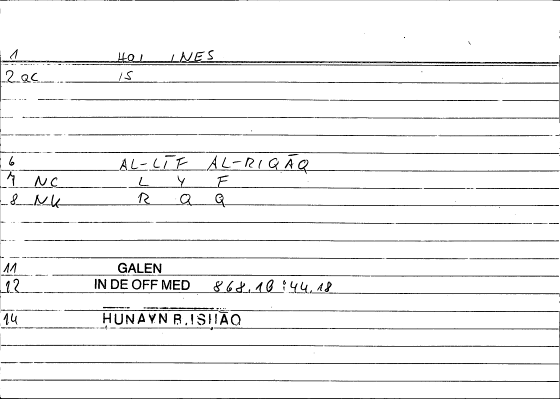 1 HOI INES
2 ac IS
6 AL-LĪF AL-RIQĀQ
7 NC L Y F
8 NK R Q Q
11 GALEN
12 IN DE OFF MED 868.10:44.18
14 HUNAYN B.ISHĀQ